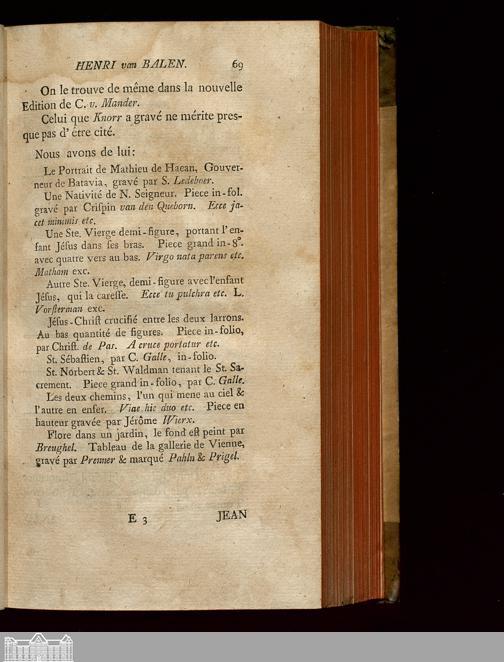 HENRI van BALEN. 69
On le trouve de même dans la nouvelle
Edition de C. v. Mander.
Celui que Knorr a gravé ne mérite pres-
que pas d' être cité.
Nous avons de lui:
Le Portrait de Mathieu de Haean, Gouver-
neur de Batavia, gravé par S. Ledeboer.
Une Nativité de N. Seigneur. Piece in-fol.
gravé par Crispin van den Queborn. Ecce ja-
cet minimis etc.
Une Ste. Vierge demi-figure, portant l' en-
fant Jésus dans ses bras. Piece grand in-8°.
avec quatre vers au bas. Virgo nata parens etc.
Matham exc.
Autre Ste. Vierge, demi-figure avec l'enfant
Jésus, qui la caresse. Ecce tu pulchra etc. L.
Vorsterman exc.
Jésus-Christ crucifié entre les deux larrons.
Au bas quantité de figures. Piece in-folio,
par Christ. de Pas. A cruce portatur etc.
St. Sébastien, par C. Galle, in-folio.
St. Norbert & St. Waldman tenant le St. Sa-
crement. Piece grand in-folio, par C. Galle.
Les deux chemins, l'un qui mene au ciel &
l'autre en enfer. Viae hic duo etc. Piece en
hauteur gravée par Jérôme Wierx.
Flore dans un jardin, le fond est peint par
Breughel. Tableau de la gallerie de Vienne,
gravé par Prenner & marqué Pahln & Prigel.
E 3 JEAN